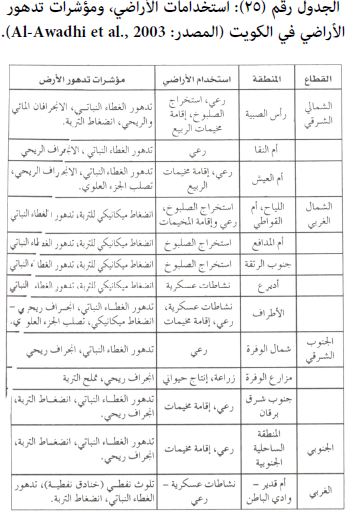 الجدول رقم (٢٥): استخدامات الأراضي، ومؤشرات تدهور
الأراضي في الكويت (المصدر: Al-Awadhi et al., 2003).
القطاع المنطقة استخدام الأراضي مؤشرات تدهور الأرض
الشمالي الشرقي رأس الصبية رعي، استخراج الصلبوخ، إقامة مخيمات الربيع تدهور الغطاء النباتي، الانجرافان المائي والريحي، انضغاط التربة.
أم النقا رعي تدهور الغطاء النباتي، الانجراف الريحي
أم العيش رعي، إقامة مخيمات الربيع تدهور الغطاء النباتي، الانجراف الريحي، تصلب الجزء العلوي.
الشمال الغربي اللياح، أم القواطي استخراج الصلبوخ، رعي وإقامة المخيمات انضغاط ميكانيكي للتربة، تدهور الغطاء النباتي
أم المدافع استخراج الصلبوخ انضغاط ميكانيكي للتربة، تدهور الغطاء النباتي
جنوب الرتقة استخراج الصلبوخ انضغاط ميكانيكي للتربة، تدهور الغطاء النباتي
أديرع نشاطات عسكرية انضغاط ميكانيكي للتربة، تدهور الغطاء النباتي
الأطراف نشاطات عسكرية، رعي، إقامة مخيمات تدهور الغطاء النباتي، انجراف ريحي – انضغاط ميكانيكي، تصلب الجزء العلوي.
الجنوب الشرقي شمال الوفرة رعي تدهور الغطاء النباتي، انجراف ريحي
مزارع الوفرة زراعة، إنتاج حيواني انجراف ريحي، تملح التربة
الجنوبي جنوب شرق برقان رعي، إقامة مخيمات تدهور الغطاء النباتي، انضغاط التربة، انجراف ريحي.
المنطقة الساحلية الجنوبية رعي، إقامة مخيمات تدهور الغطاء النباتي، انضغاط التربة، انجراف ريحي.
الغربي أم قدير – وادي الباطن نشاطات عسكرية – رعي تلوث نفطي (خنادق نفطية)، تدهور الغطاء النباتي، انضغاط التربة.